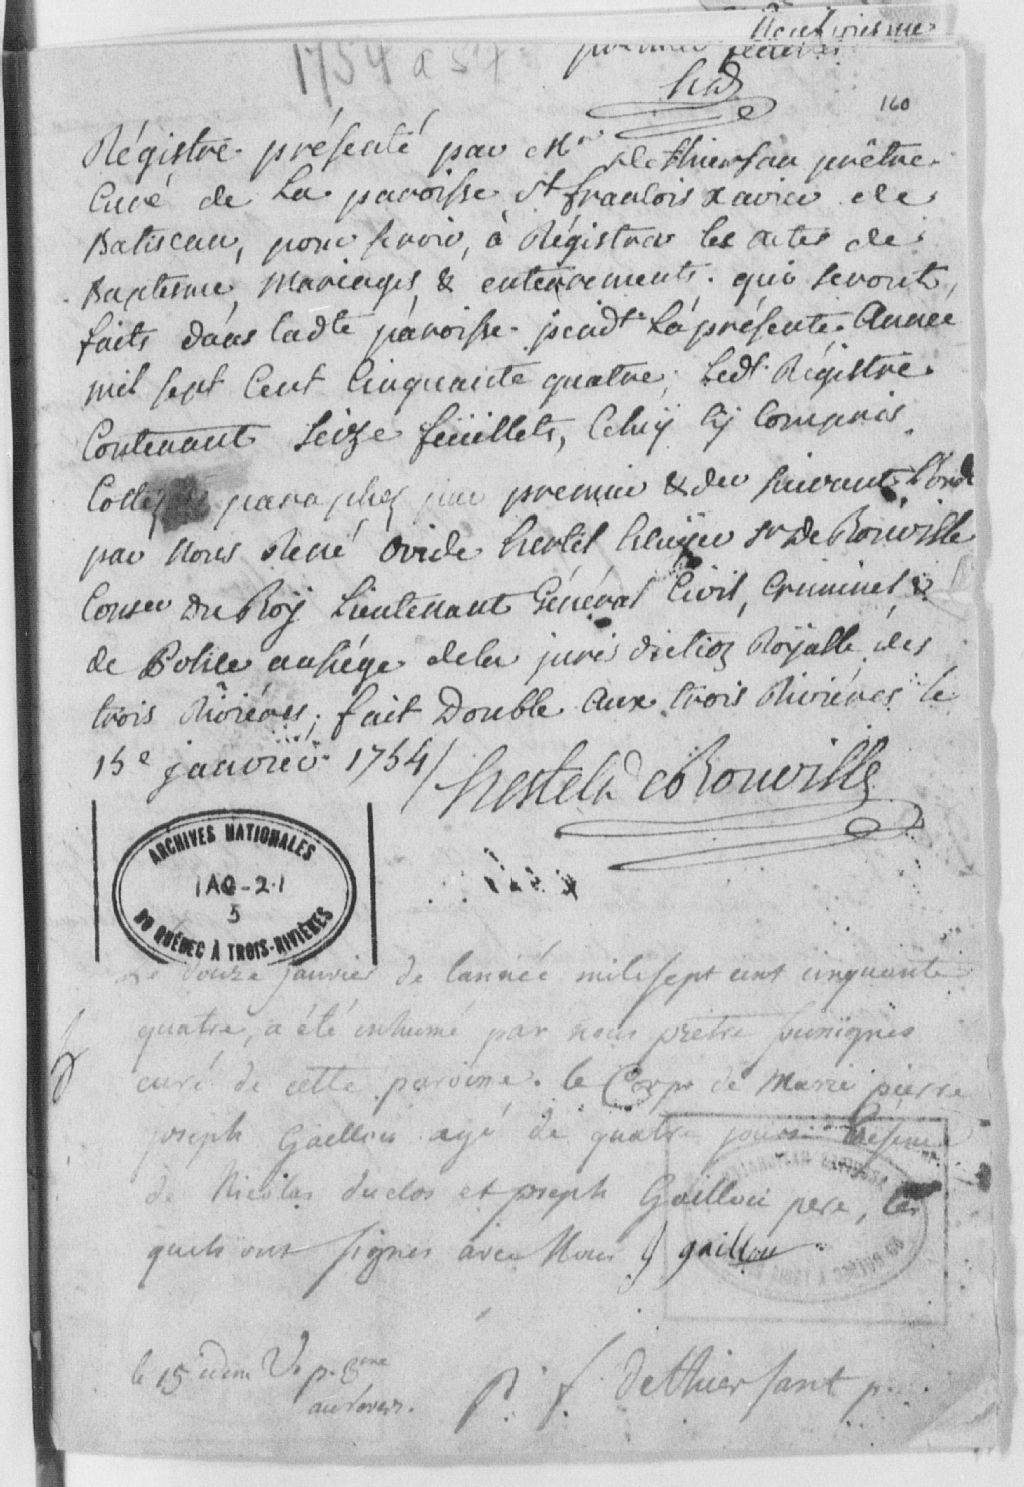 1754 a 57
premier feuillet
160
Régistre présenté par Mr dethiersan prêtre
Curé de La paroisse St francois xavier de
Batiscan, pour servir, à Régistrer les actes de
Baptesme, Mariages, & enterrements qui seront,
faits dans ladte paroisse pendt La présente Année
mil sept Cent Cinquante quatre; Ledt Régistre
Contenant Seize feüillets, Celuy Cy Compris
paraphez par premier & der suivant L'ordce
par Nous René Ovide hertel Ecuyer Sr De Rouville
Conser Du Roy Lieutenant Général Civil, Criminel &
de Police au siége dela jurisdiction Royalle des
trois Rivières; fait Double Aux trois Rivières le
15e janvier 1754/ hertel De Rouville
ARCHIVES NATIONALES
1AQ-2-1
5
DU QUÉBEC À TROIS-RIVIÈRES
Le douze janvier de lannée mil sept cent cinquante
quatre, a été inhumé par nous prêtre soussignés
curé de cette paroisse. le Corps de Marie pierre
joseph Gaillou agé de quatre jours
de Nicolas duclos et joseph Gaillou pere, les
quels ont signés avec Nous J gaillou
le 15 idem V. p. 8me
p. f. dethiersant p.